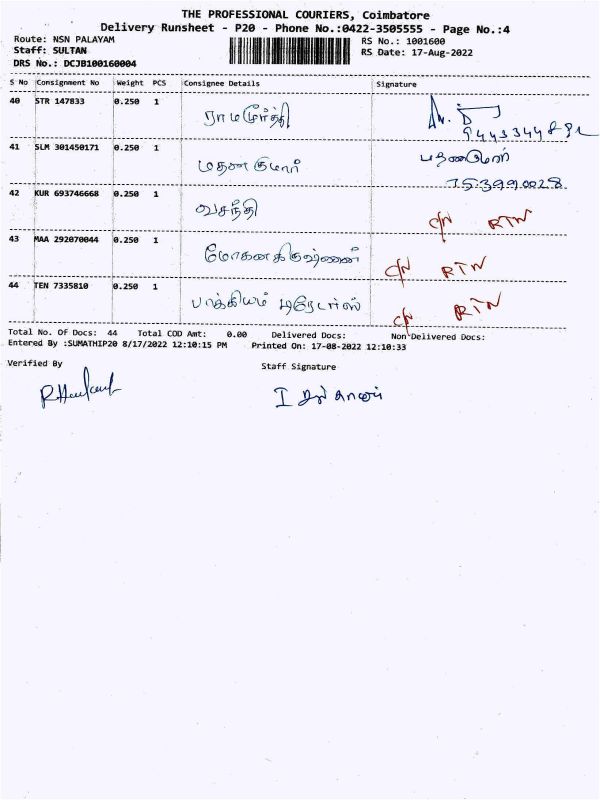 THE PROFESSIONAL COURIERS, Coimbatore
Delivery Runsheet - P20 - Phone No.:0422-3505555 - Page No.:4
Route: NSN PALAYAM
RS No.: 1001600
Staff: SULTAN
RS Date: 17-Aug-2022
DRS No.: DCJB100160004
S No Consignment No Weight PCS Consignee Details Signature
40 STR 147833 0.250 1 ராமமூர்த்தி
41 SLM 301450171 0.250 1 மதனகுமார்
42 KUR 693746668 0.250 1 வசந்தி C/N RTN
43 MAA 292070044 0.250 1 மோகனகிருஷ்ணன் C/N RTN
44 TEN 7335810 0.250 1 பாக்கியம் டிரேடர்ஸ் C/N RTN
Total No. Of Docs: 44 Total COD Amt: 0.00 Delivered Docs: Non Delivered Docs:
Entered By :SUMATHIP20 8/17/2022 12:10:15 PM Printed On: 17-08-2022 12:10:33
Verified By
Staff Signature